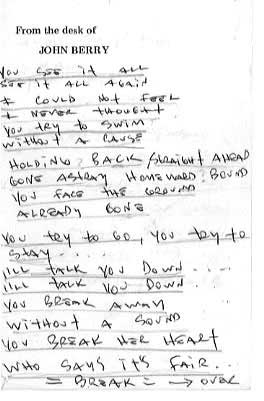 From the desk of
JOHN BERRY
You see it all
see it all again
I could not feel
I never thought
you try to swim
without a cause
Holding? Back straight ahead
gone astray homeward? Bound
You face the ground
already gone
You try to go, you try to
stay . . . .
I'll talk you down . . . .
I'll talk you down .
You break away
without a sound
You break her heart
who says it's fair . . .
= Break = → over